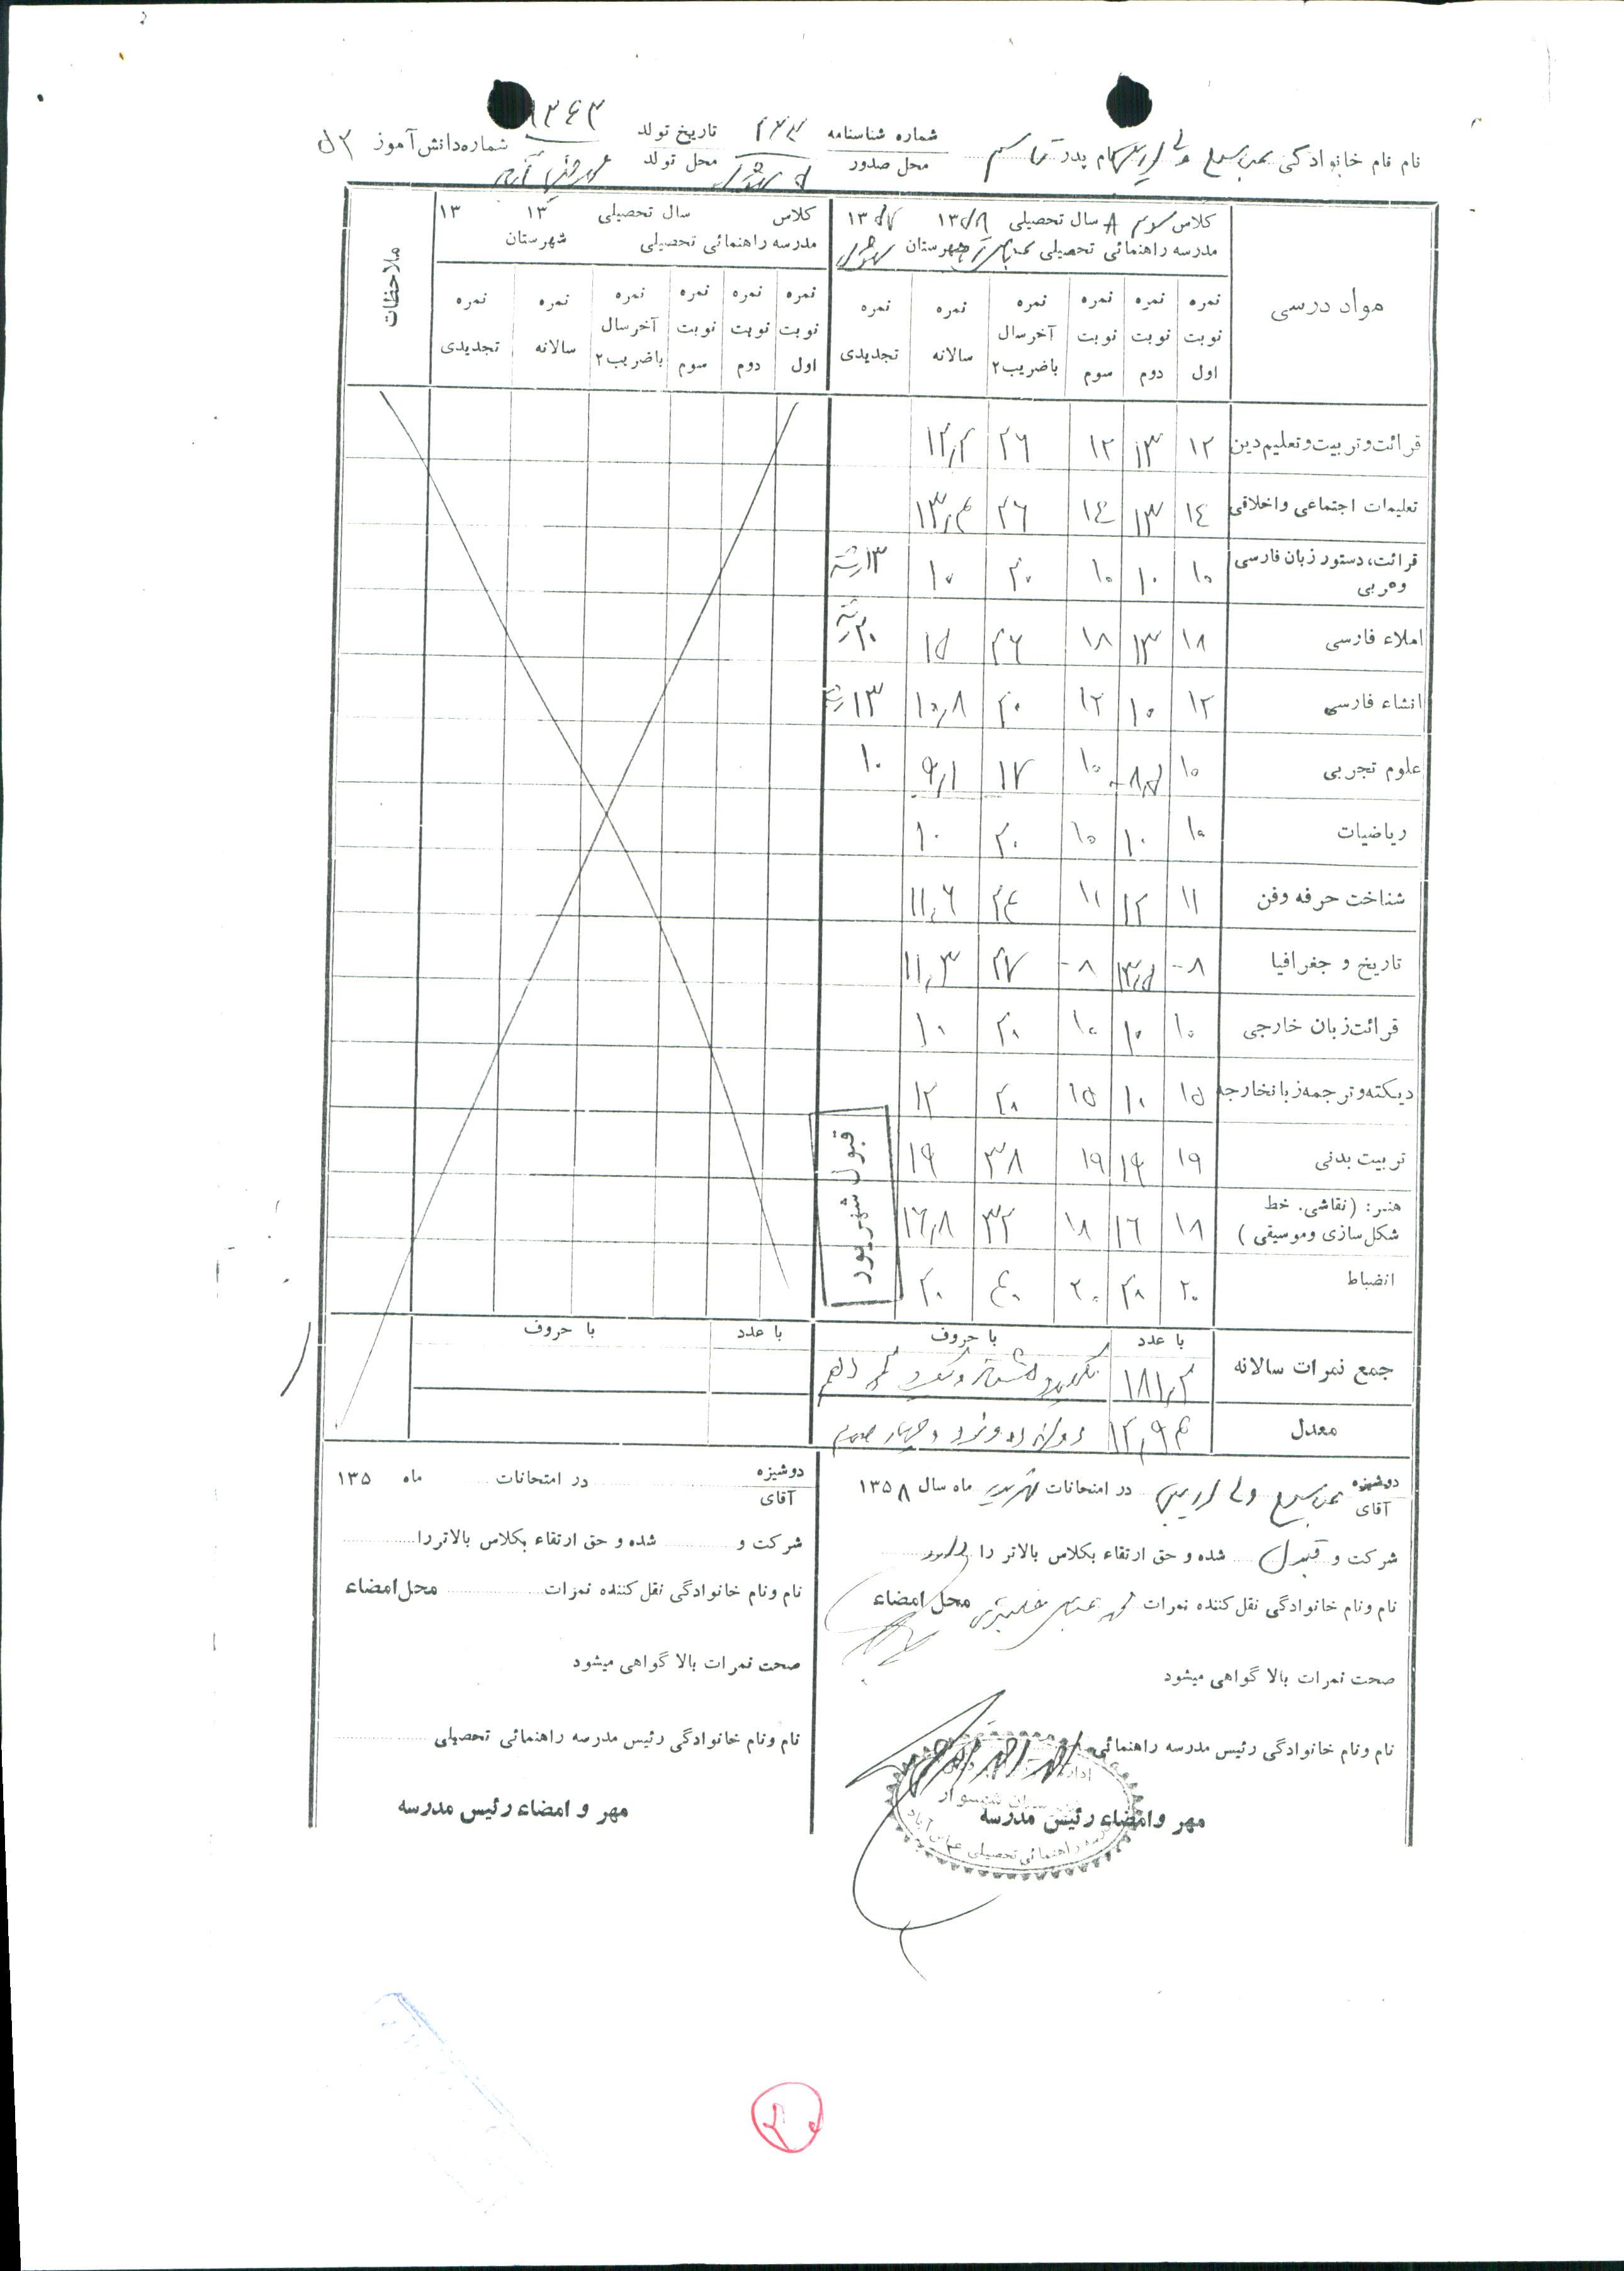 نام نام خانوادگی نام پدر شماره شناسنامه ۲۴۳ تاریخ تولد ۱۳۴۳ شماره دانش آموز
محل صدور محل تولد
مواد درسی
کلاس سوم سال تحصیلی ۱۳۵۸ ۱۳۵۷
مدرسه راهنمائی تحصیلی شهرستان
نمره نوبت اول
نمره نوبت دوم
نمره نوبت سوم
نمره آخر سال باضریب ۲
نمره سالانه
نمره تجدیدی
کلاس سال تحصیلی ۱۳ ۱۳
مدرسه راهنمائی تحصیلی شهرستان
نمره نوبت اول
نمره نوبت دوم
نمره نوبت سوم
نمره آخر سال باضریب ۲
نمره سالانه
نمره تجدیدی
ملاحظات
قرائت و تربیت و تعلیم دین ۱۲ ۱۳ ۱۲ ۲۶ ۱۲٫۲
تعلیمات اجتماعی و اخلاقی ۱۴ ۱۳ ۱۴ ۲۶ ۱۳٫۴
قرائت، دستور زبان فارسی ۱۰ ۱۰ ۱۰ ۲۰ ۱۰ ۱۳
وعربی
املاء فارسی ۱۸ ۱۳ ۱۸ ۲۶ ۱۵ ۲۰
انشاء فارسی ۱۲ ۱۰ ۱۲ ۲۰ ۱۰٫۸ ۱۳
علوم تجربی ۱۰ ۸٫۵ ۱۰ ۱۷ ۹٫۱ ۱۰
ریاضیات ۱۰ ۱۰ ۱۰ ۲۰ ۱۰
شناخت حرفه وفن ۱۱ ۱۲ ۱۱ ۲۴ ۱۱٫۶
تاریخ و جغرافیا ۸- ۱۳٫۵ ۸- ۲۷ ۱۱٫۳
قرائت زبان خارجی ۱۰ ۱۰ ۱۰ ۲۰ ۱۰
دیکته و ترجمه زبانخارجه ۱۵ ۱۰ ۱۵ ۲۰ ۱۲
تربیت بدنی ۱۹ ۱۹ ۱۹ ۳۸ ۱۹
هنر: (نقاشی. خط ۱۸ ۱۶ ۱۸ ۳۲ ۱۶٫۸
شکل سازی و موسیقی)
انضباط ۲۰ ۲۰ ۲۰ ۴۰ ۲۰
قبول شهریور
با عدد با حروف با عدد با حروف
جمع نمرات سالانه ۱۸۱٫۲
معدل ۱۲٫۹۴
دوشیزه
آقای در امتحانات شهریور ماه سال ۱۳۵۸
شرکت و قبول شده و حق ارتقاء بکلاس بالاتر را دارد
نام ونام خانوادگی نقل کننده نمرات محل امضاء
صحت نمرات بالا گواهی میشود
نام ونام خانوادگی رئیس مدرسه راهنمائی
مهر وامضاء رئیس مدرسه
دوشیزه
آقای در امتحانات ماه ۱۳۵
شرکت و شده و حق ارتقاء بکلاس بالاتررا
نام ونام خانوادگی نقل کننده نمرات محل امضاء
صحت نمرات بالا گواهی میشود
نام ونام خانوادگی رئیس مدرسه راهنمائی تحصیلی
مهر و امضاء رئیس مدرسه